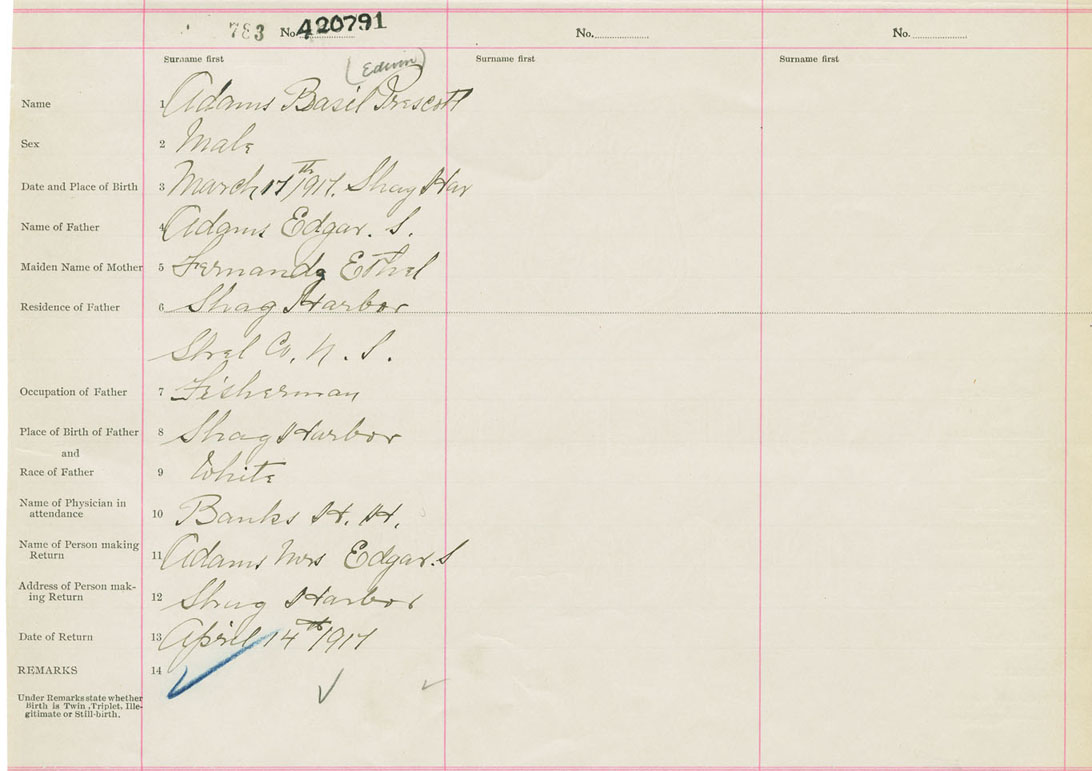 783 No. 420791 No. No.
Surname first Surname first Surname first
(Edwin)
Name 1 Adams Basil Prescott
Sex 2 Male
Date and Place of Birth 3 March 17th 1917. Shag Har
Name of Father 4 Adams Edgar. S.
Maiden Name of Mother 5 Fernandg Ethel
Residence of Father 6 Shag Harbor
Shel Co, N. S.
Occupation of Father 7 Fisherman
Place of Birth of Father 8 Shag Harbor
and
Race of Father 9 White
Name of Physician in
attendance 10 Banks H. H.
Name of Person making
Return 11 Adams Mrs Edgar. S
Address of Person mak-
ing Return 12 Shag Harbor
Date of Return 13 April 14th 1917
REMARKS 14
Under Remarks state whether
Birth is Twin, Triplet, Ille-
gitimate or Still-birth.